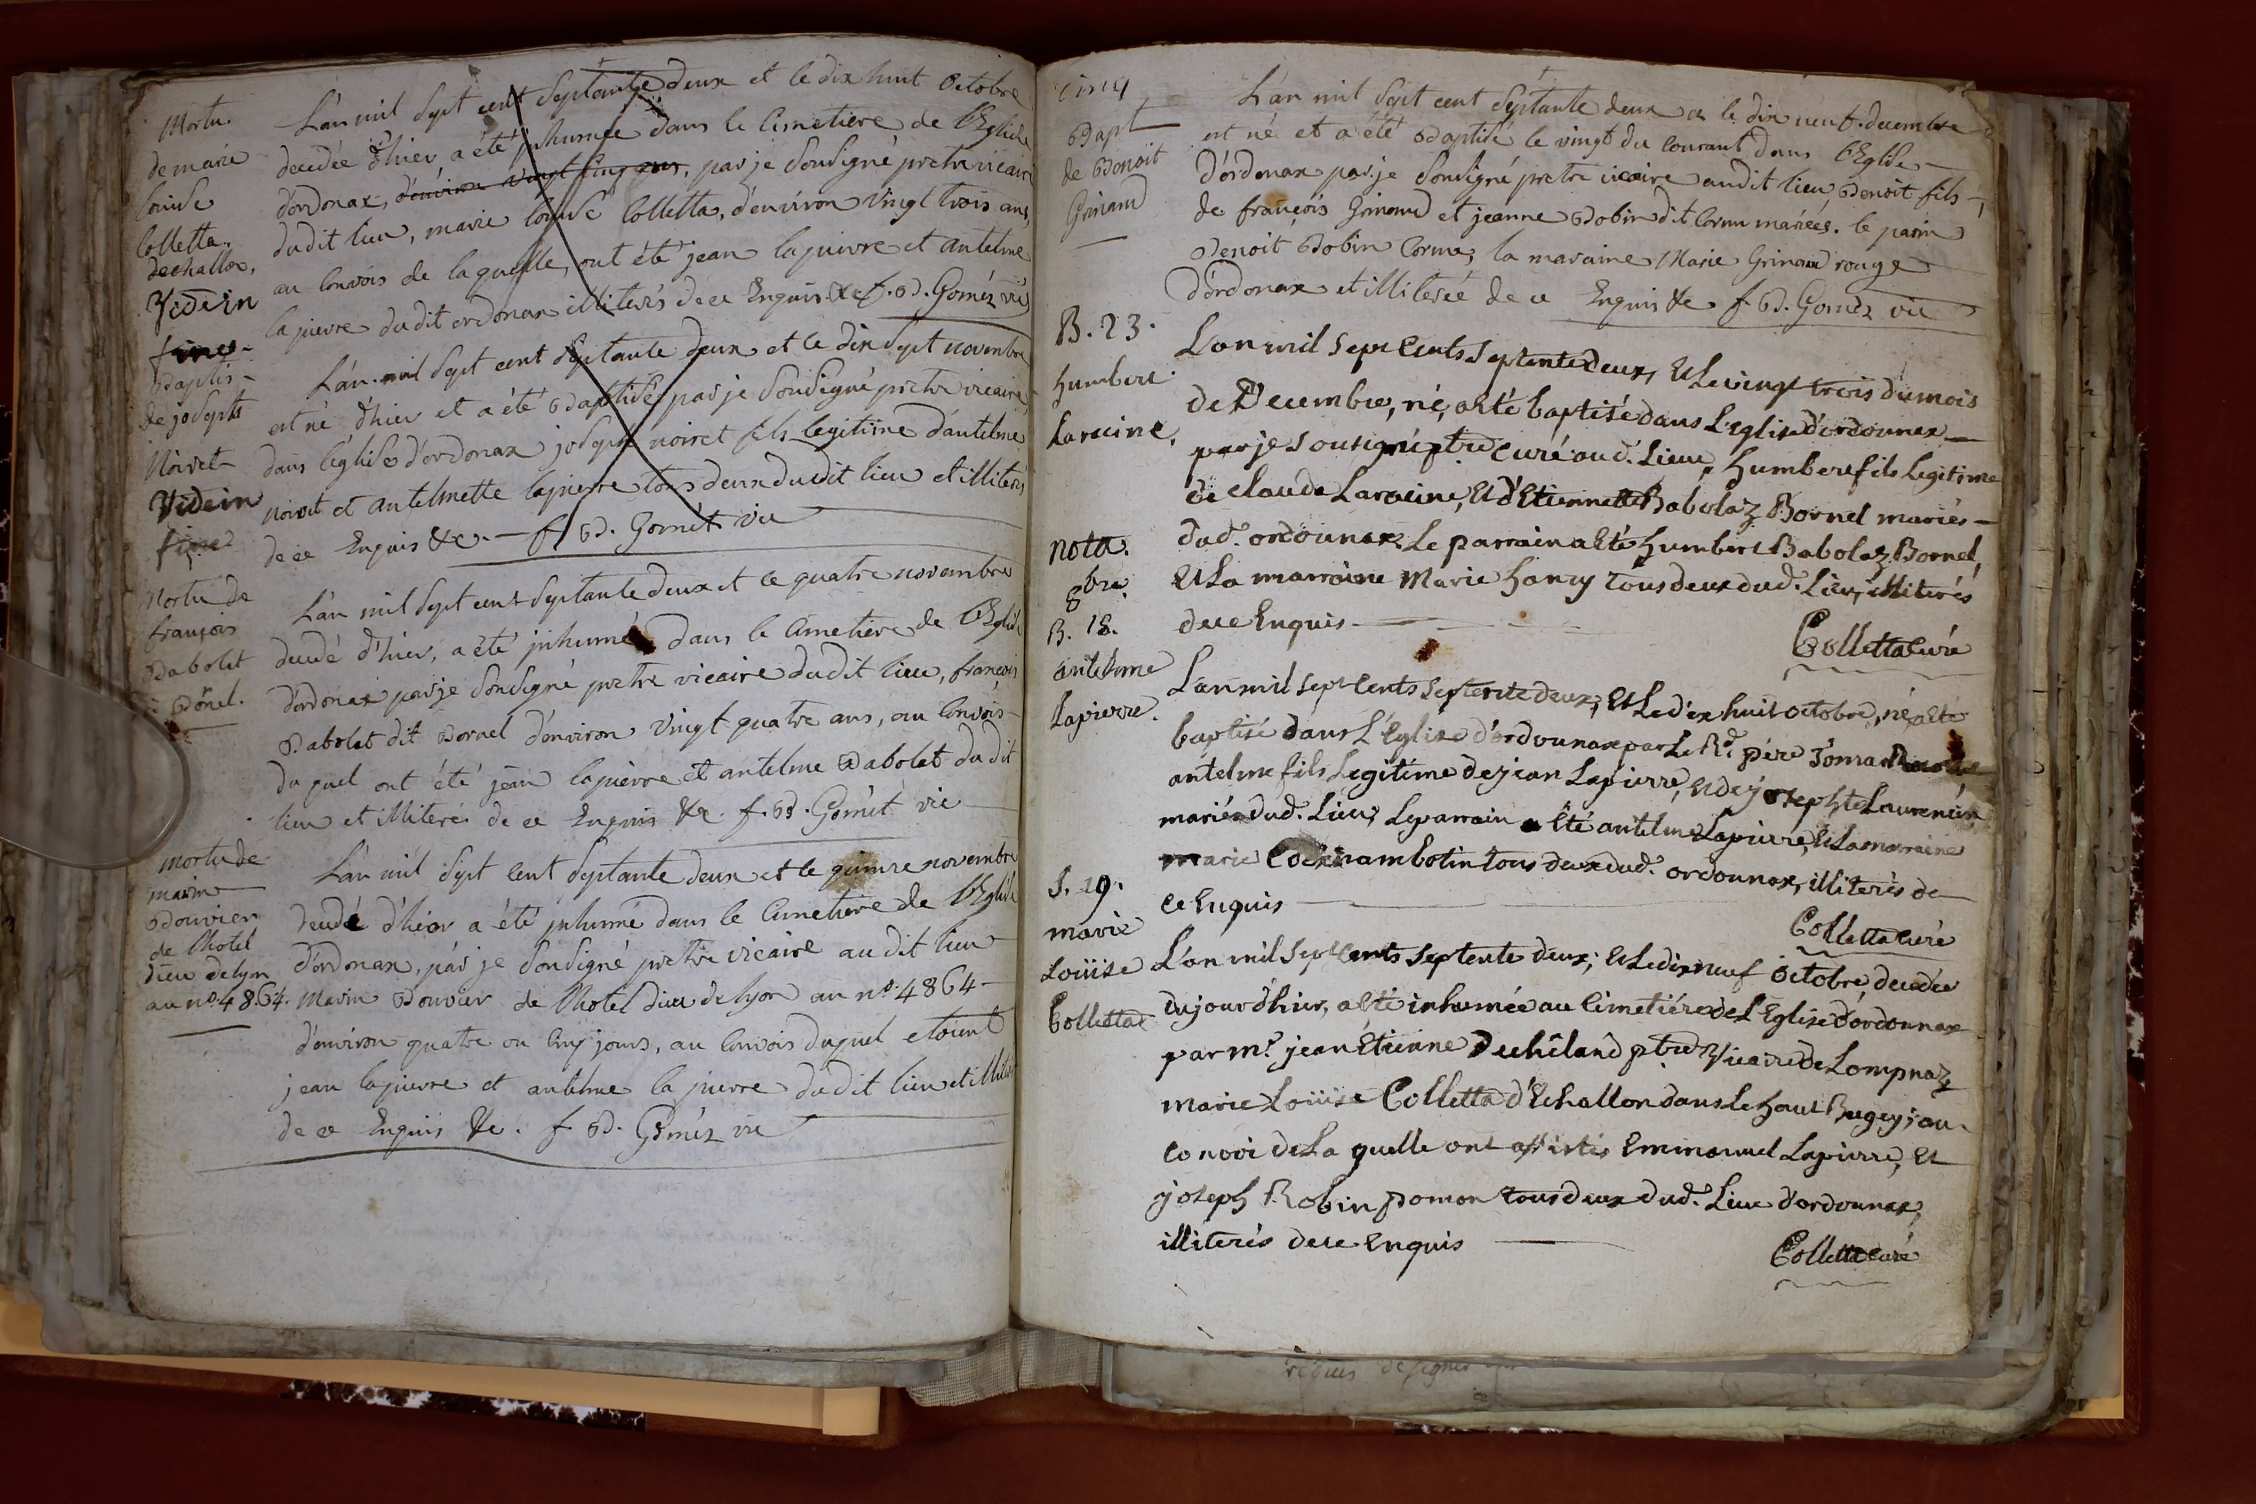 Mortu.
de marie
louise
Colletta.
dechallon,
Videin
fine
L'an mil sept cent septante deux et le dix huit octobre
decedée d'hier, a été inhumée dans le Cimetiere de l'Eglise
d'ordonax, d'environ vingt cinq ans, par je sousigné pretre vicaire
dudit lieu, marie louise Colletta, d'environ vingt trois ans,
au convois de laquelle, ont été jean lapierre et antelme
lapierre dudit ordonax illiterés de ce Enquis &c f. B. Goméz vic
Baptis-
de joseph
Noiret
Videin
fine
L'an mil sept cent septante deux et le dix sept novembre
est né d'hier et a été Baptisé par je sousigné pretre vicaire
dans l'église d'ordonax joseph noiret fils legitime d'antelme
noiret et antelmette lapierre tous deux dudit lieu et illiterés
de ce Enquis &c. — f B. Gomét vic
Mortu de
françois
Babolet
Bornel.
L'an mil sept cent septante deux et le quatre novembre
decedé d'hier, a été inhumé dans le Cimetiere de l'Eglise
d'ordonax par je sousigné pretre vicaire dudit lieu, françois
Babolat dit Bornel d'environ vingt quatre ans, au Convois
du quel ont été jean lapierre et antelme Babolat du dit
lieu et illiteré de ce Enquis &c. f. B. Gomét vic
mortu de
marin
Bouvier
de l'hotel
dieu de lyon
au nº. 4864.
L'an mil sept cent septante deux et le quinze novembre
decedé d'hier a été inhumé dans le Cimetiere de l'Eglise
d'ordonax, par je sousigné pretre vicaire au dit lieu
marin Bouvier de l'hotel dieu de lyon au nº. 4864 —
d'environ quatre ou cinq jours, au Convois duquel etount
jean lapierre et antelme la pierre du dit lieu et illiterés
de ce Enquis &c. f B. Goméz vic
Bapt
de Benoit
Grinand
L'an mil sept cent septante deux et le dix neuf decembre
est né et a été Baptisé le vingt du courant dans l'Eglise
d'ordonax par je sousigné pretre vicaire audit lieu, Benoit fils
de françois Grinand et jeanne Bobin dit Cormu mariées. le parin
Benoit Bobin Cormu, la maraine Marie Grinand rouge
d'ordonax et illiterée de ce Enquis &c f B. Goméz vic
B. 23.
humbert
Laracine.
L'an mil sept Cents septente deux, Et Le vingt trois du mois
de Decembre, né, a Eté baptisé dans L'Eglise d'ordounax —
par je sousigné ptre Curé aud. Lieu, humbert fils legitime
de Claude Laracine, Et d'Etiennette Babolaz Bornel mariés —
dud. ordounax. Le parrain a Eté humbert Babolaz Bornel,
Et La marraine Marie hanry tous deux dud. Lieu, illiterés
de ce Enquis —
Colletta Curé
nota.
8bre.
B. 18.
antelme
Lapierre.
L'an mil sept Cents septente deux, Et Le dix huit octobre, né, a Eté
baptisé dans L'Eglise d'ordounax par Le Rd. pére
antelme fils Legitime de jean Lapierre, Et de josephte Laurencin
mariés dud. Lieu, Le parrain a Eté antelme Lapierre, Et La marraine
marie Cochambotin tous deux dud. ordounax, illiterés de
ce Enquis —
Colletta Curé
S. 19.
marie
Loüise
Colletta
L'an mil sept Cents septente deux, Et Le dix neuf octobre decedée
du jour d'hier, a Eté inhumée au Cimetiére de L'Eglise d'ordounax
par mr. jean Etienne Duchêland ptre Vicaire de Lompnaz
marie Loüise Colletta d'Echallon dans Le haut Bugey; au
convoi de La quelle ont assistés Emmanuel Lapierre, Et
joseph Robin pomon tous deux dud. Lieu d'ordounax,
illiterés de ce Enquis —
Colletta Curé
requis de signer